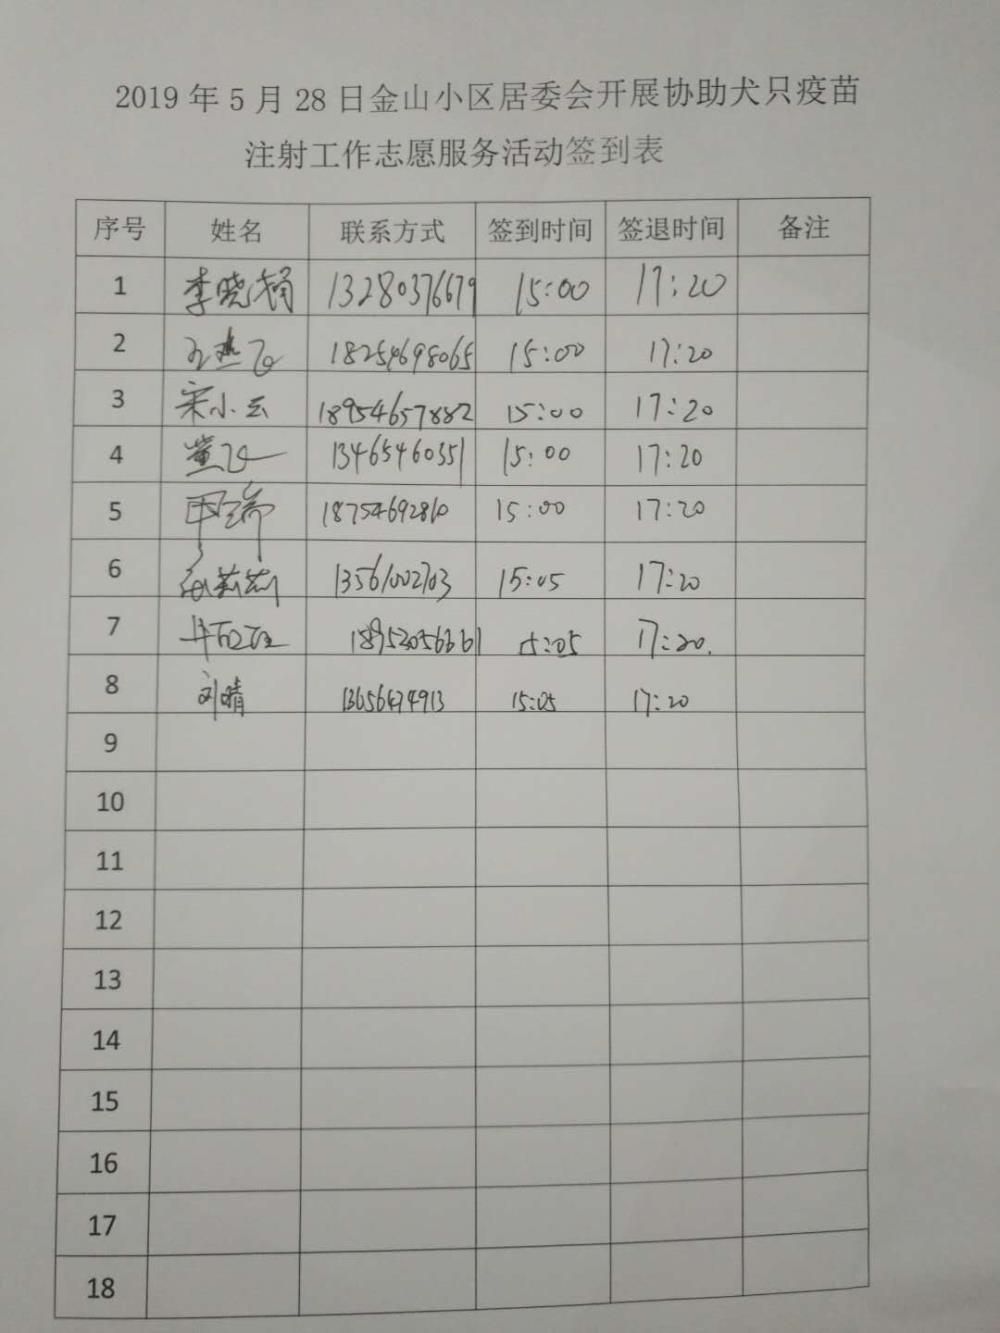 2019 年 5 月 28 日金山小区居委会开展协助犬只疫苗
注射工作志愿服务活动签到表
序号 姓名 联系方式 签到时间 签退时间 备注
1 李晓 13280376679 15:00 17:20
2 18254698065 15:00 17:20
3 宋小云 18954657882 15:00 17:20
4 董飞 13465460351 15:00 17:20
5 18754692810 15:00 17:20
6 13561002703 15:05 17:20
7 15:05 17:20.
8 刘晴 13656474913 15:05 17:20
9
10
11
12
13
14
15
16
17
18